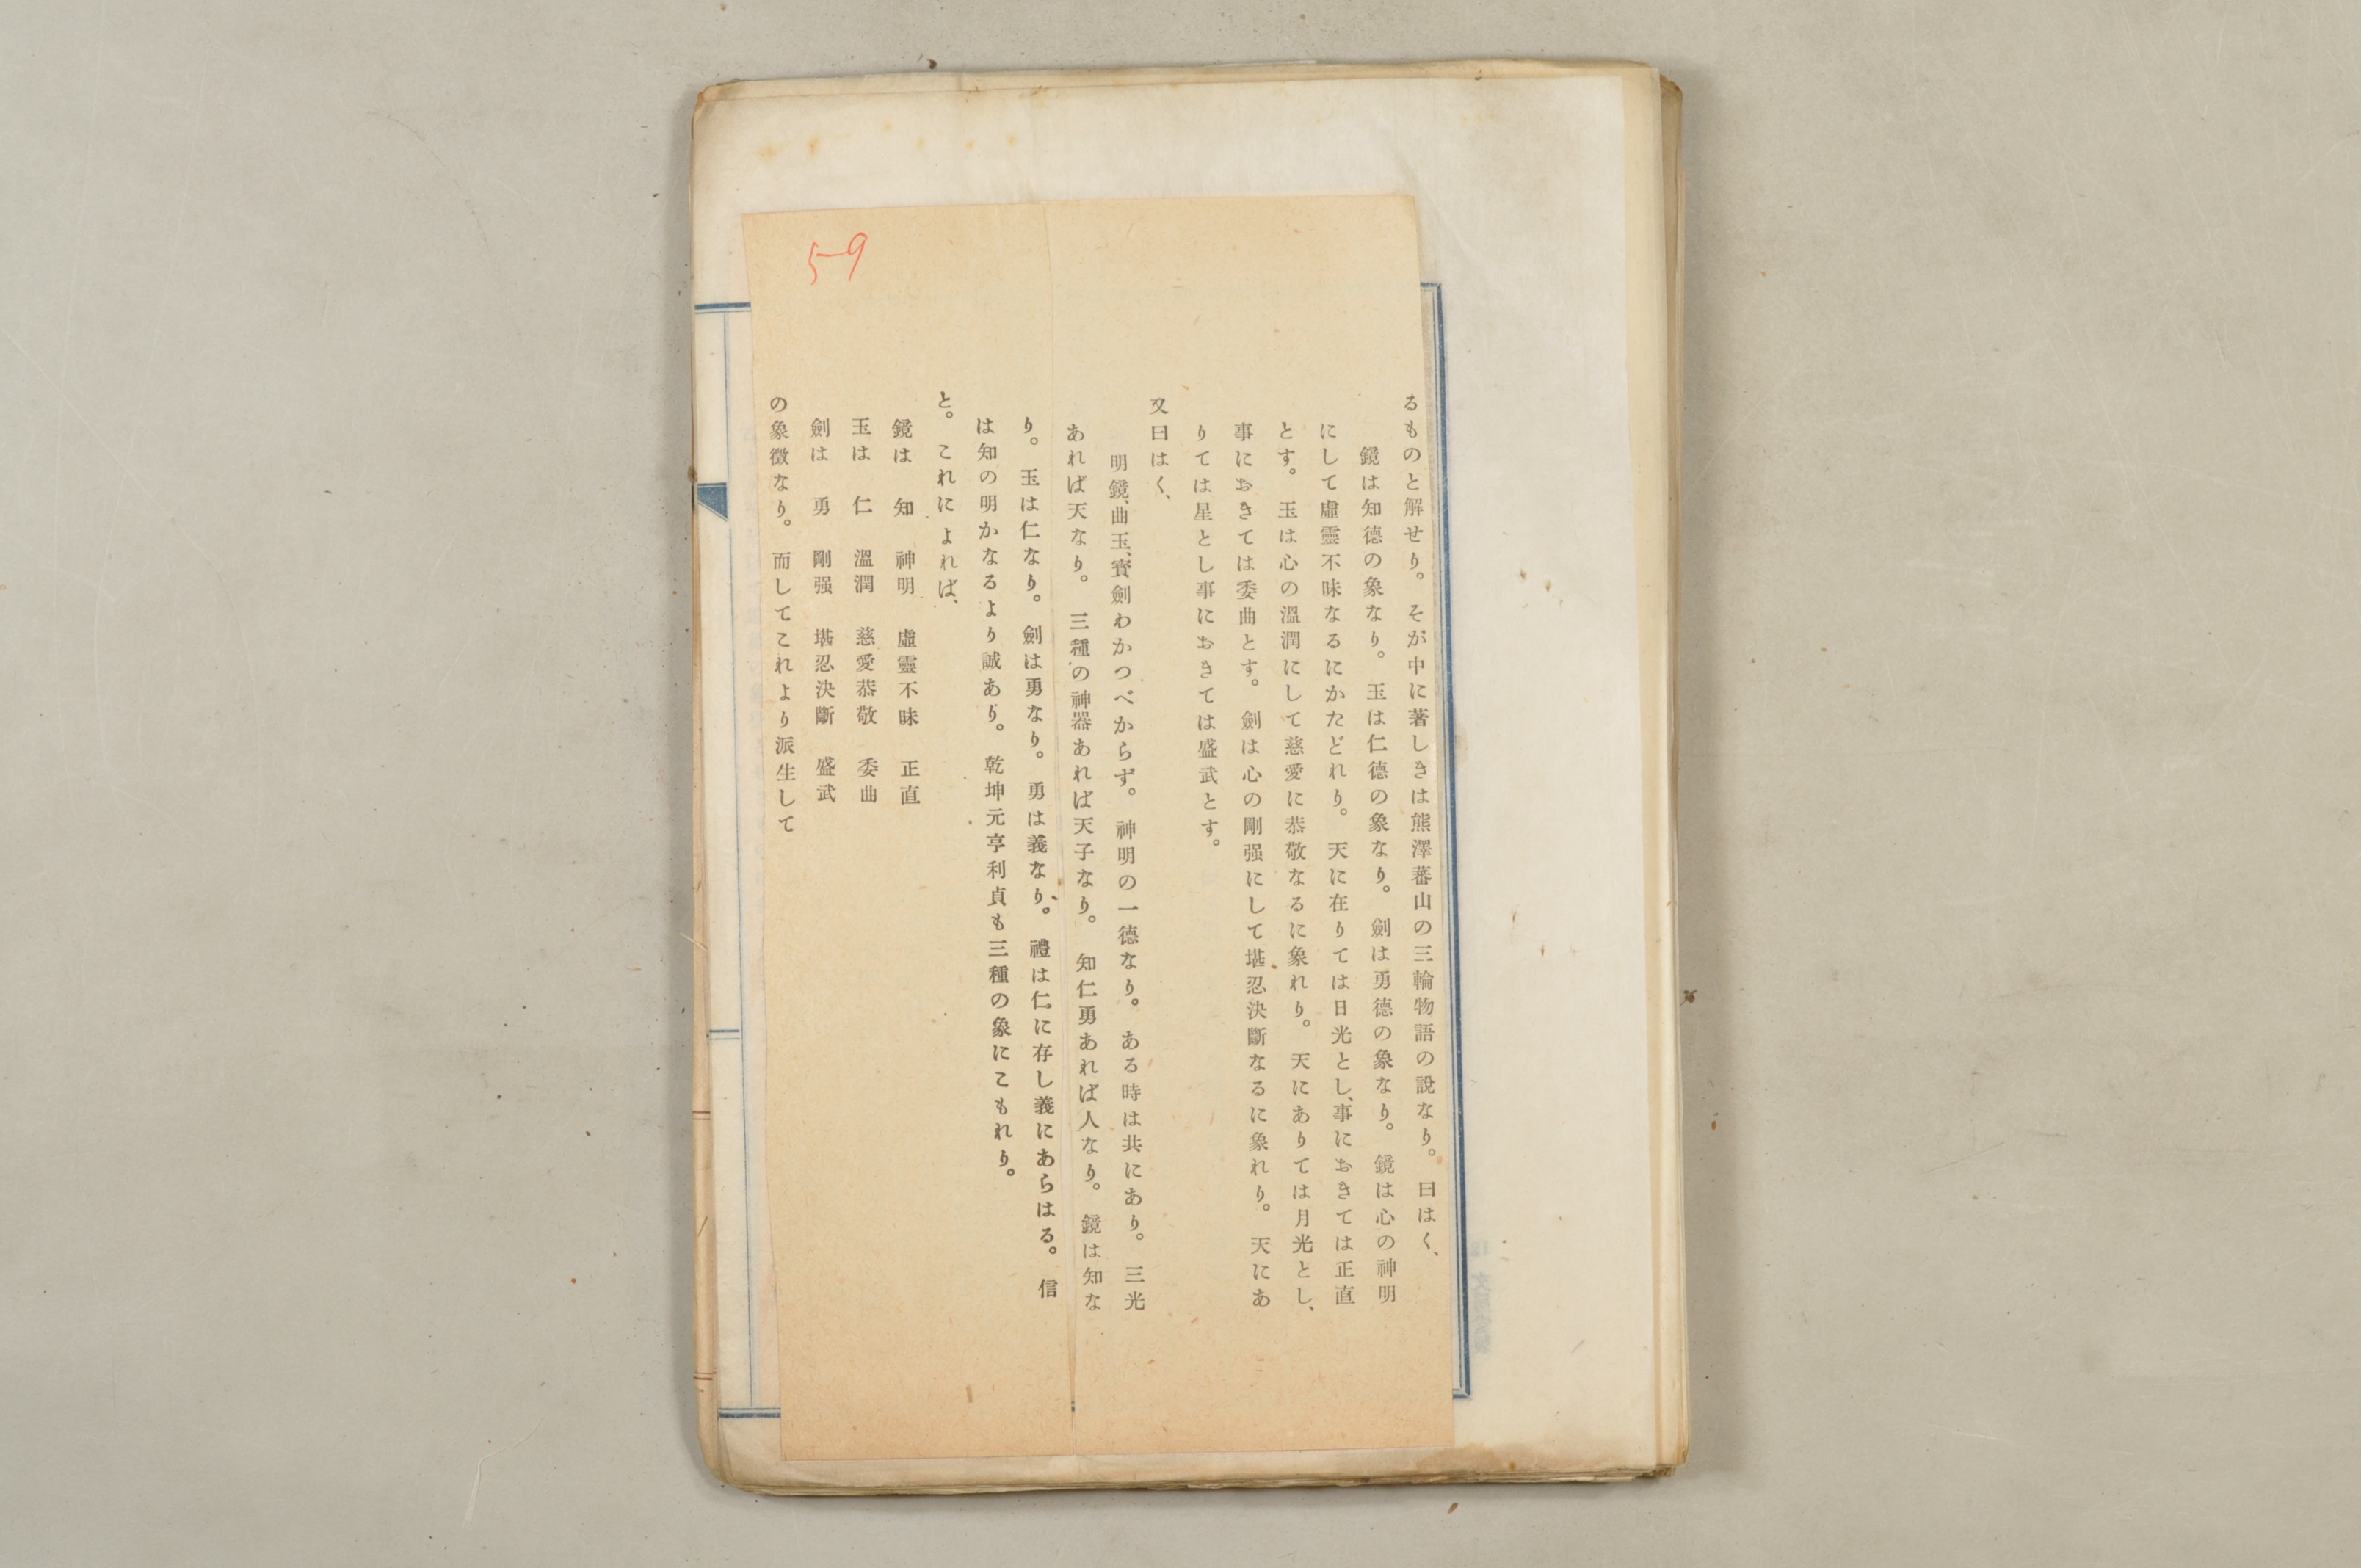 59
るものと解せり。そが中に著しきは熊澤蕃山の三輪物語の說なり。曰はく、
鏡は知德の象なり。玉は仁德の象なり。劍は勇德の象なり。鏡は心の神明
にして虛靈不昧なるにかたどれり。天に在りては日光とし、事におきては正直
とす。玉は心の溫潤にして慈愛に恭敬なるに象れり。天にありては月光とし、
事におきては委曲とす。劍は心の剛强にして堪忍決斷なるに象れり。天にあ
りては星とし事におきては盛武とす。
又曰はく、
明鏡、曲玉、寶劍わかつべからず。神明の一德なり。ある時は共にあり。三光
あれば天なり。三種の神器あれば天子なり。知仁勇あれば人なり。鏡は知な
り。玉は仁なり。劍は勇なり。勇は義なり。禮は仁に存し義にあらはる。信
は知の明かなるより誠あり。乾坤元亨利貞も三種の象にこもれり。
と。これによれば、
鏡は　知　神明　虛靈不昧　正直
玉は　仁　溫潤　慈愛恭敬　委曲
劍は　勇　剛强　堪忍決斷　盛武
の象徵なり。而してこれより派生して